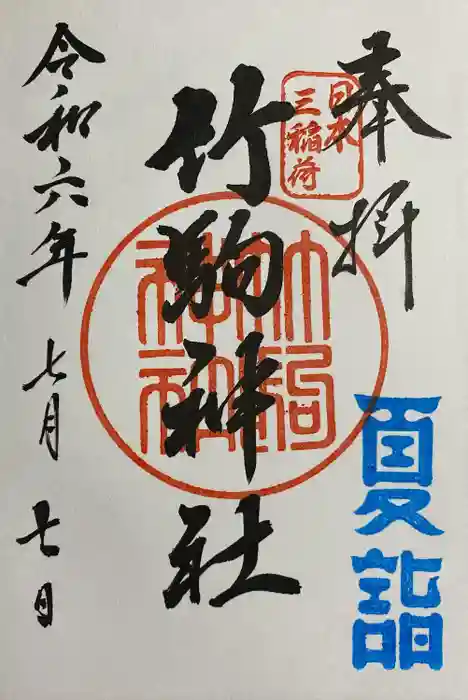 奉拝
日本
三稲荷
夏詣
竹駒神社
竹駒
神社
令和六年七月七日